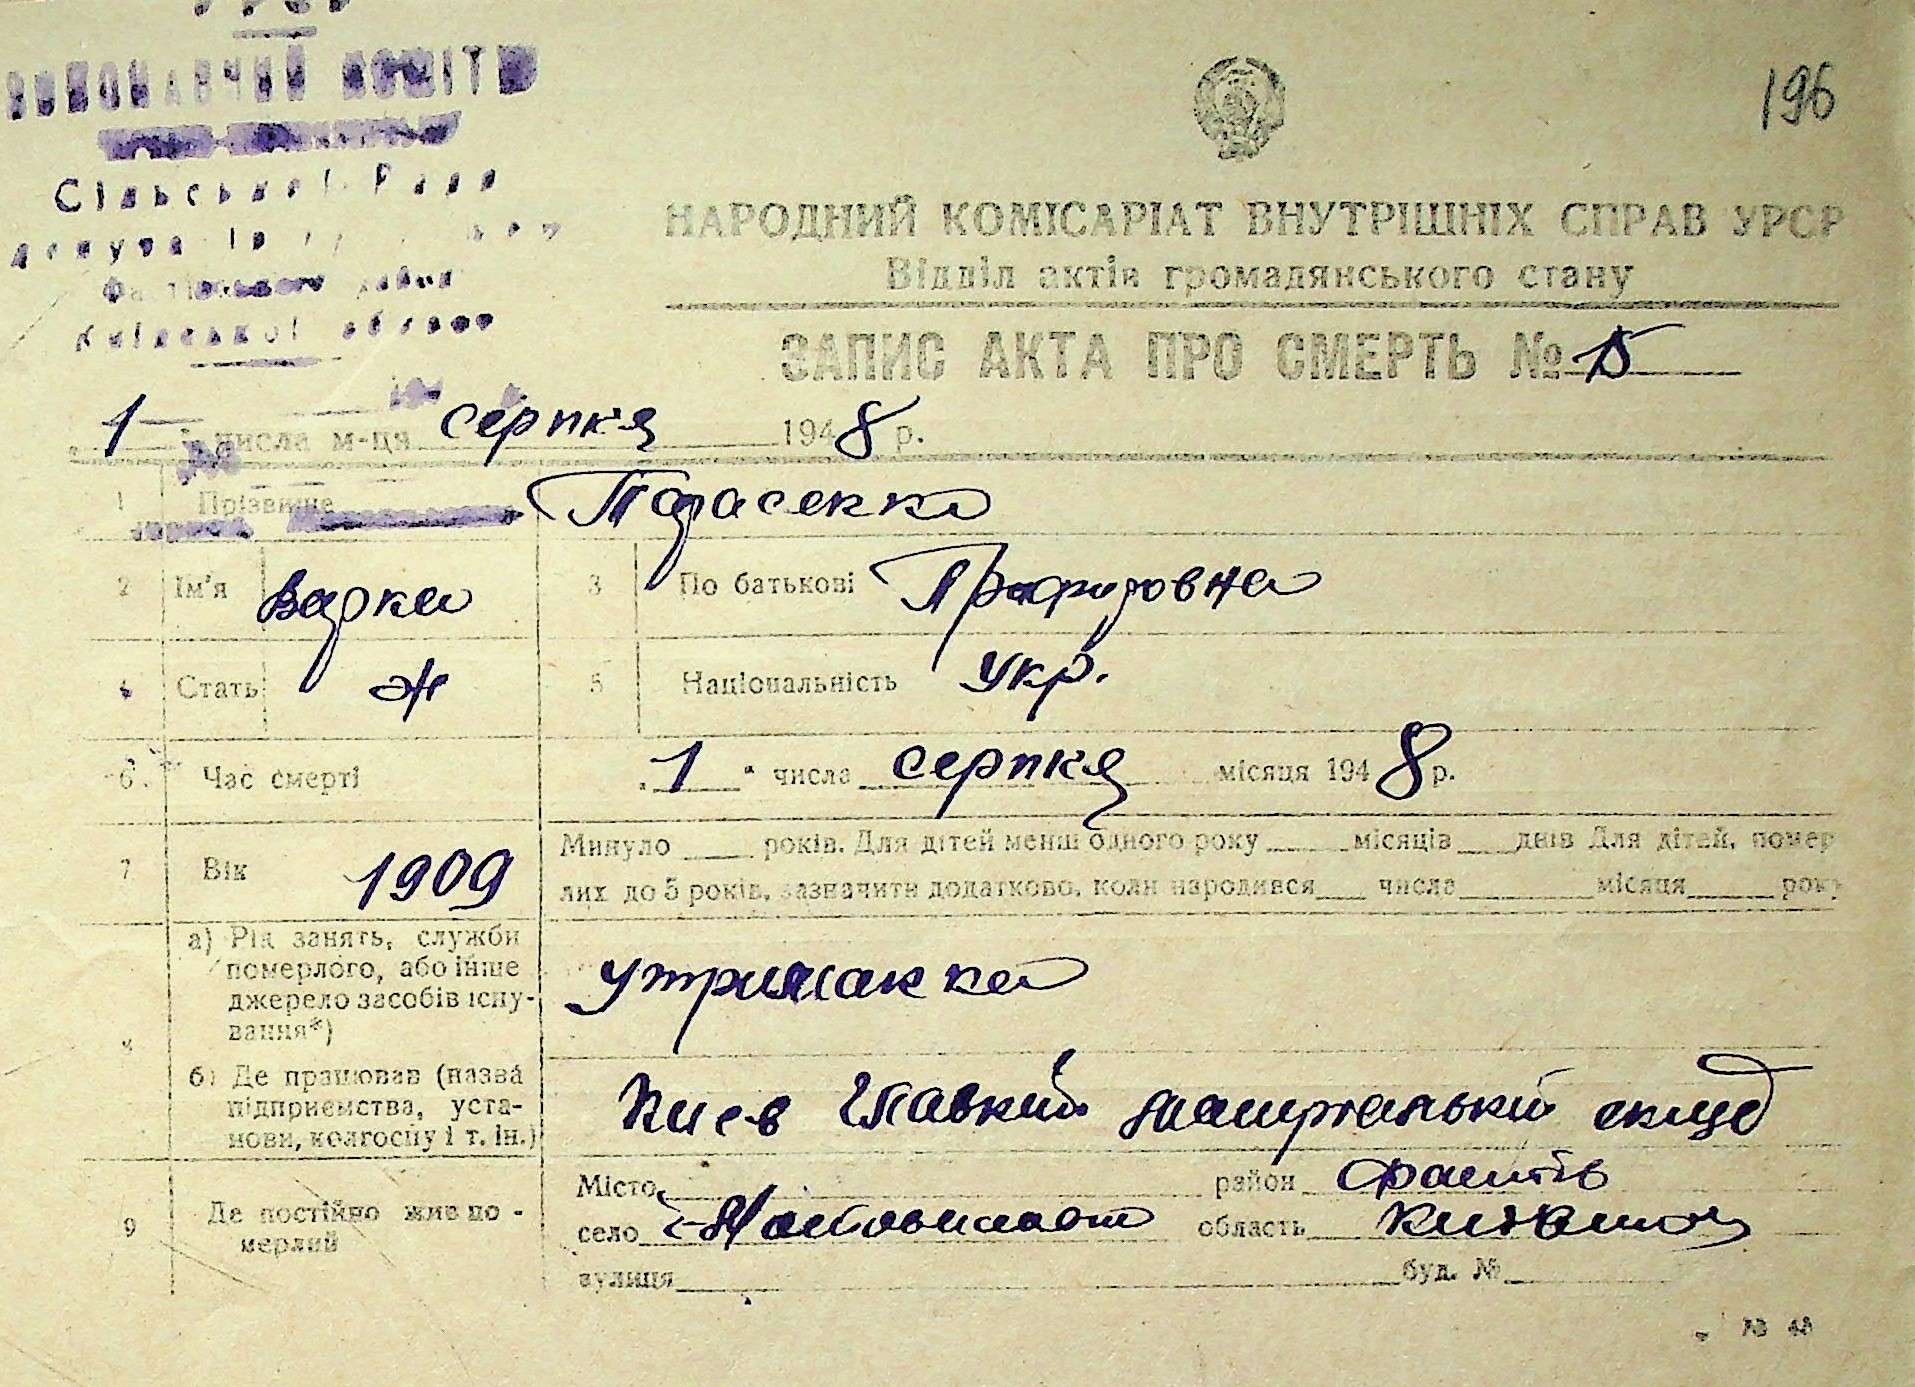 УРСР
ВИКОНАВЧИЙ КОМІТЕТ
Сільської Ради
Фастівського району
Київської області
196
НАРОДНИЙ КОМІСАРІАТ ВНУТРІШНІХ СПРАВ УРСР
Відділ актів громадянського стану
ЗАПИС АКТА ПРО СМЕРТЬ № 15
"1" числа м-ця серпня 1948 р.
1 Прізвище Тарасенко
2 Ім'я Варка 3 По батькові
4 Стать ж 5 Національність Укр.
6. Час смерті "1" числа серпня місяця 1948 р.
7 Вік 1909 Минуло ____ років. Для дітей менш одного року ____ місяців ____ днів Для дітей, помер
лих до 5 років, зазначити додатково, коли народився ____ числа ____ місяця ____ року
а) Рід занять, служби
померлого, або інше
джерело засобів існу-
вання*)
утриманка
б) Де працював (назва
підприємства, уста-
нови, колгоспу і т. ін.)
Киев Главний материальний склад
9 Де постійно жив по-
мерлий
Місто ____ район Фастів
село область
вулиця ____ буд. № ____